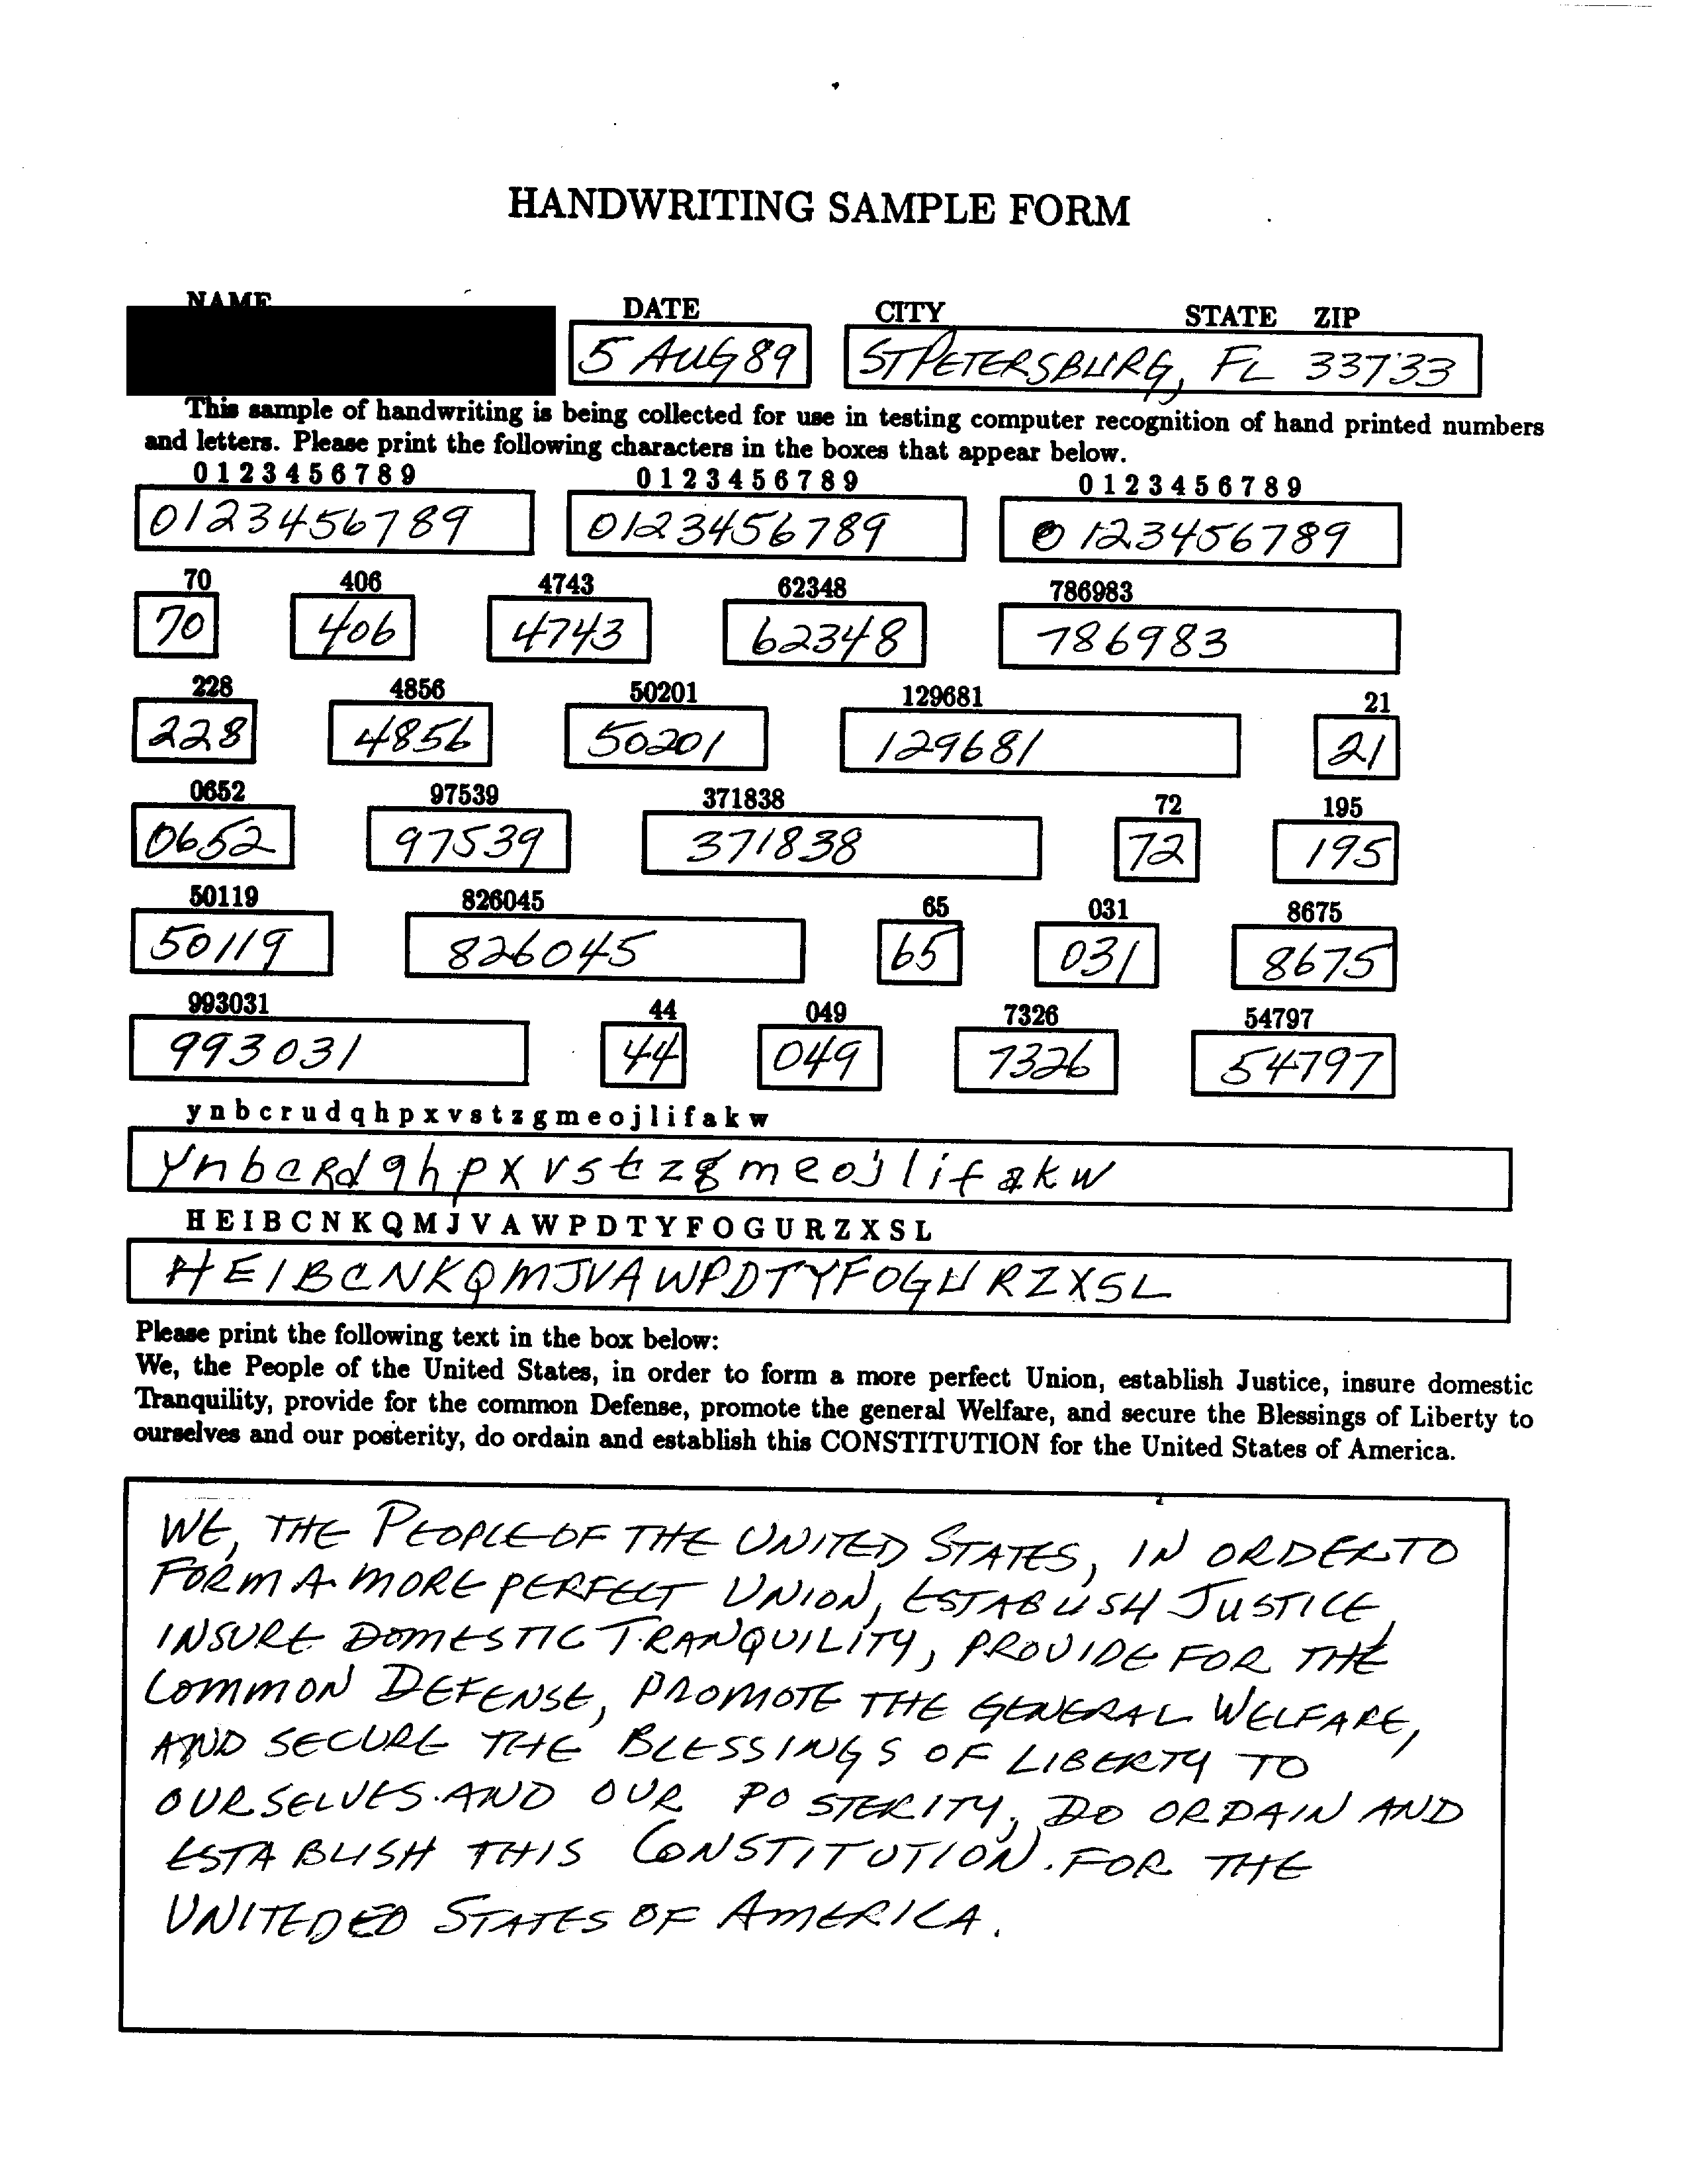 HANDWRITING SAMPLE FORM
NAME DATE CITY STATE ZIP
5 AUG 89 ST PETERSBURG, FL 33733
This sample of handwriting is being collected for use in testing computer recognition of hand printed numbers
and letters. Please print the following characters in the boxes that appear below.
0 1 2 3 4 5 6 7 8 9 0 1 2 3 4 5 6 7 8 9 0 1 2 3 4 5 6 7 8 9
0123456789 0123456789 0123456789
70 406 4743 62348 786983
70 406 4743 62348 786983
228 4856 50201 129681 21
228 4856 50201 129681 21
0652 97539 371838 72 195
0652 97539 371838 72 195
50119 826045 65 031 8675
50119 826045 65 031 8675
993031 44 049 7326 54797
993031 44 049 7326 54797
y n b c r u d q h p x v s t z g m e o j l i f a k w
y n b c R d q h p x v s t z g m e o j l i f a k w
H E I B C N K Q M J V A W P D T Y F O G U R Z X S L
H E I B C N K Q M J V A W P D T Y F O G U R Z X S L
Please print the following text in the box below:
We, the People of the United States, in order to form a more perfect Union, establish Justice, insure domestic
Tranquility, provide for the common Defense, promote the general Welfare, and secure the Blessings of Liberty to
ourselves and our posterity, do ordain and establish this CONSTITUTION for the United States of America.
WE, THE PEOPLE OF THE UNITED STATES, IN ORDER TO
FORM A MORE PERFECT UNION, ESTABLISH JUSTICE,
INSURE DOMESTIC TRANQUILITY, PROVIDE FOR THE
COMMON DEFENSE, PROMOTE THE GENERAL WELFARE,
AND SECURE THE BLESSINGS OF LIBERTY TO
OURSELVES AND OUR POSTERITY, DO ORDAIN AND
ESTABLISH THIS CONSTITUTION. FOR THE
UNITEDED STATES OF AMERICA.